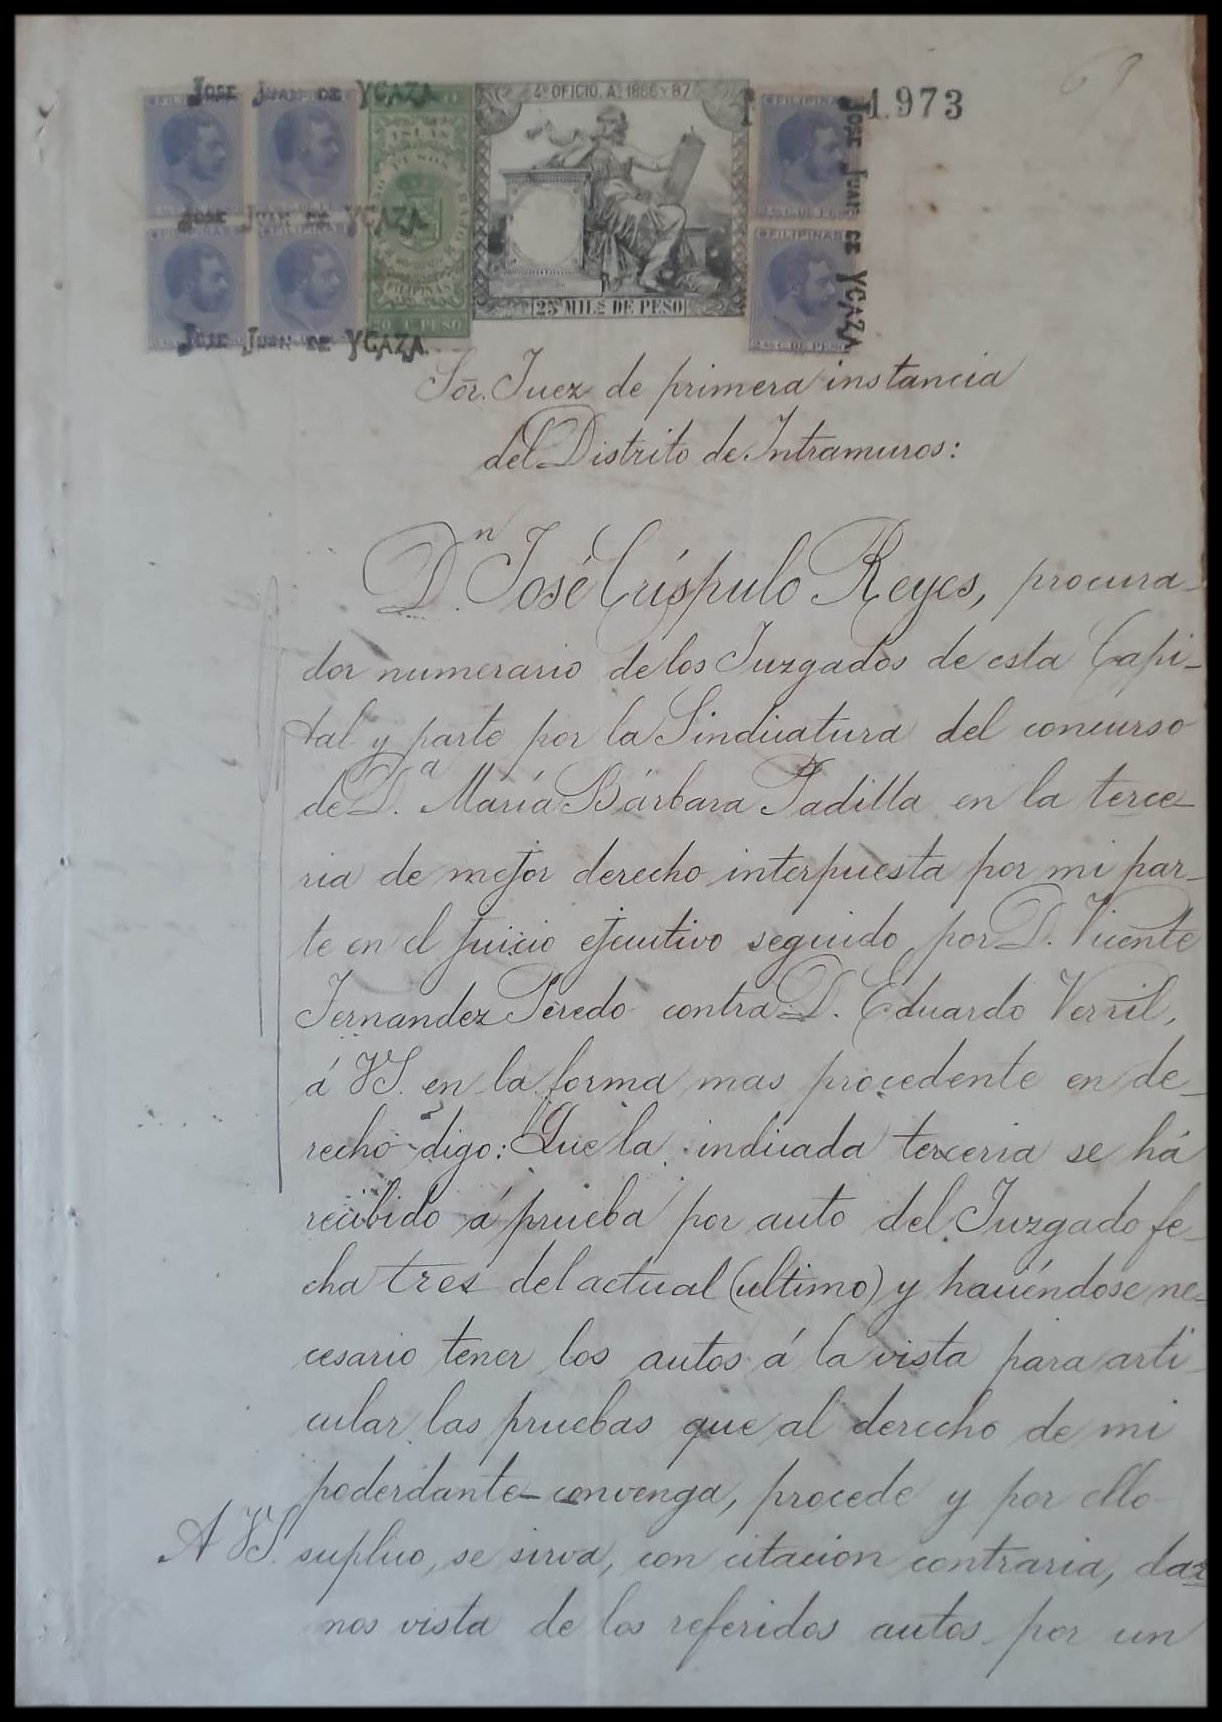 69
JOSE JUAN DE YCAZA
4º OFICIO. Aº 1886 Y 87
1.973
FILIPINAS
JOSE JUAN DE YCAZA
JOSE JUAN DE YCAZA
FILIPINAS
FILIPINAS
FILIPINAS
2 4/8 C. DE PESO
25 MILS DE PESO
JOSE JUAN DE YCAZA
Sōr. Juez de primera instancia
del Distrito de Intramuros:
Dn. José Críspulo Reyes, procura-
dor numerario de los Juzgados de esta Capi-
tal y parte por la Sindicatura del concurso
de Da. María Bárbara Padilla en la terce-
ria de mejor derecho interpuesta por mi par-
te en el juicio ejecutivo seguido por D. Vicente
Fernandez Peredo contra D. Eduardo Verzil,
á VS. en la forma mas procedente en de-
recho digo: Que la indicada terceria se há
recibido á prueba por auto del Juzgado fe-
cha tres del actual (ultimo) y haciéndose ne-
cesario tener los autos á la vista para arti-
cular las pruebas que al derecho de mi
poderdante convenga, procede y por ello
A VS. suplico, se sirva, con citacion contraria, dar
nos vista de los referidos autos por un